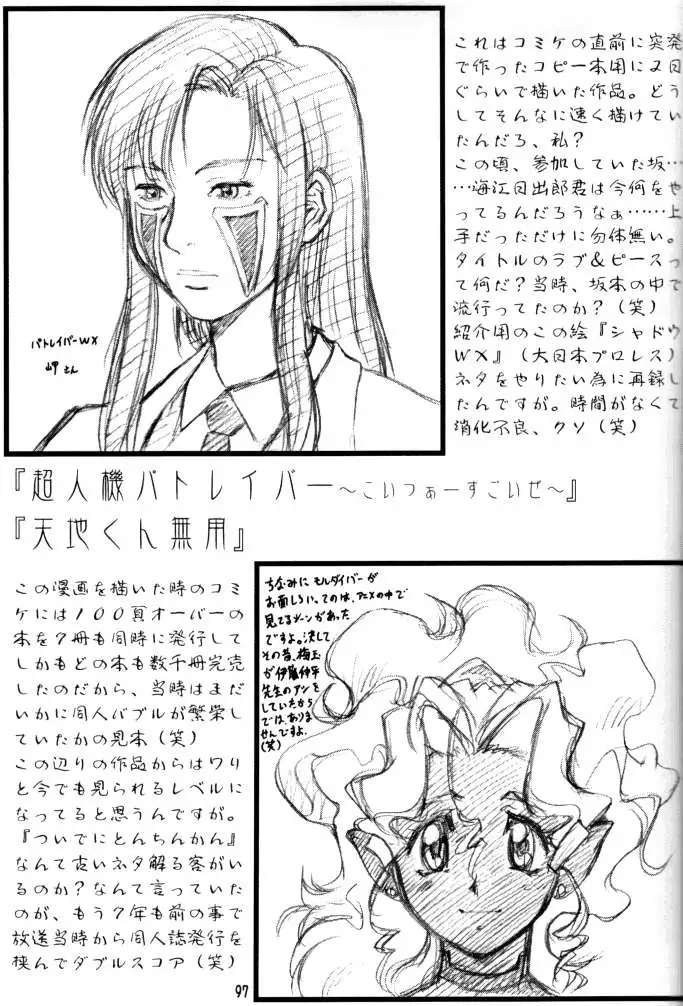 これはコミケの直前に突発
で作ったコピー本用に2日
ぐらいで描いた作品。どう
してそんなに速く描けてい
たんだろ、私?
この頃、参加していた坂…
…海江日出郎君は今何をや
ってるんだろうなぁ……上
手だっただけに勿体無い。
タイトルのラブ&ピースっ
て何だ?当時、坂本の中で
流行ってたのか?(笑)
紹介用のこの絵『シャドウ
WX』(大日本プロレス)
ネタをやりたい為に再録し
たんですが。時間がなくて
消化不良、クソ(笑)
パトレイバーWX
岬さん
『超人機パトレイバー〜こいつぁーすごいぜ〜』
『天地くん無用』
この漫画を描いた時のコミ
ケには100頁オーバーの
本を7冊も同時に発行して
しかもどの本も数千冊完売
したのだから、当時はまだ
いかに同人バブルが繁栄し
ていたかの見本(笑)
この辺りの作品からはワり
と今でも見られるレベルに
なってると思うんですが。
『ついでにとんちんかん』
なんて古いネタ解る客がい
るのか?なんて言っていた
のが、もう7年も前の事で
放送当時から同人誌発行を
挟んでダブルスコア(笑)
ちなみにモルダイバーが
お面しろい、てのは、アニメの中で
見てるシーンがあった
ですよ。決して
その昔、梅玉
が伊藤伸平
先生のアシを
していたから
では、ありま
せんですよ。
(笑)
97